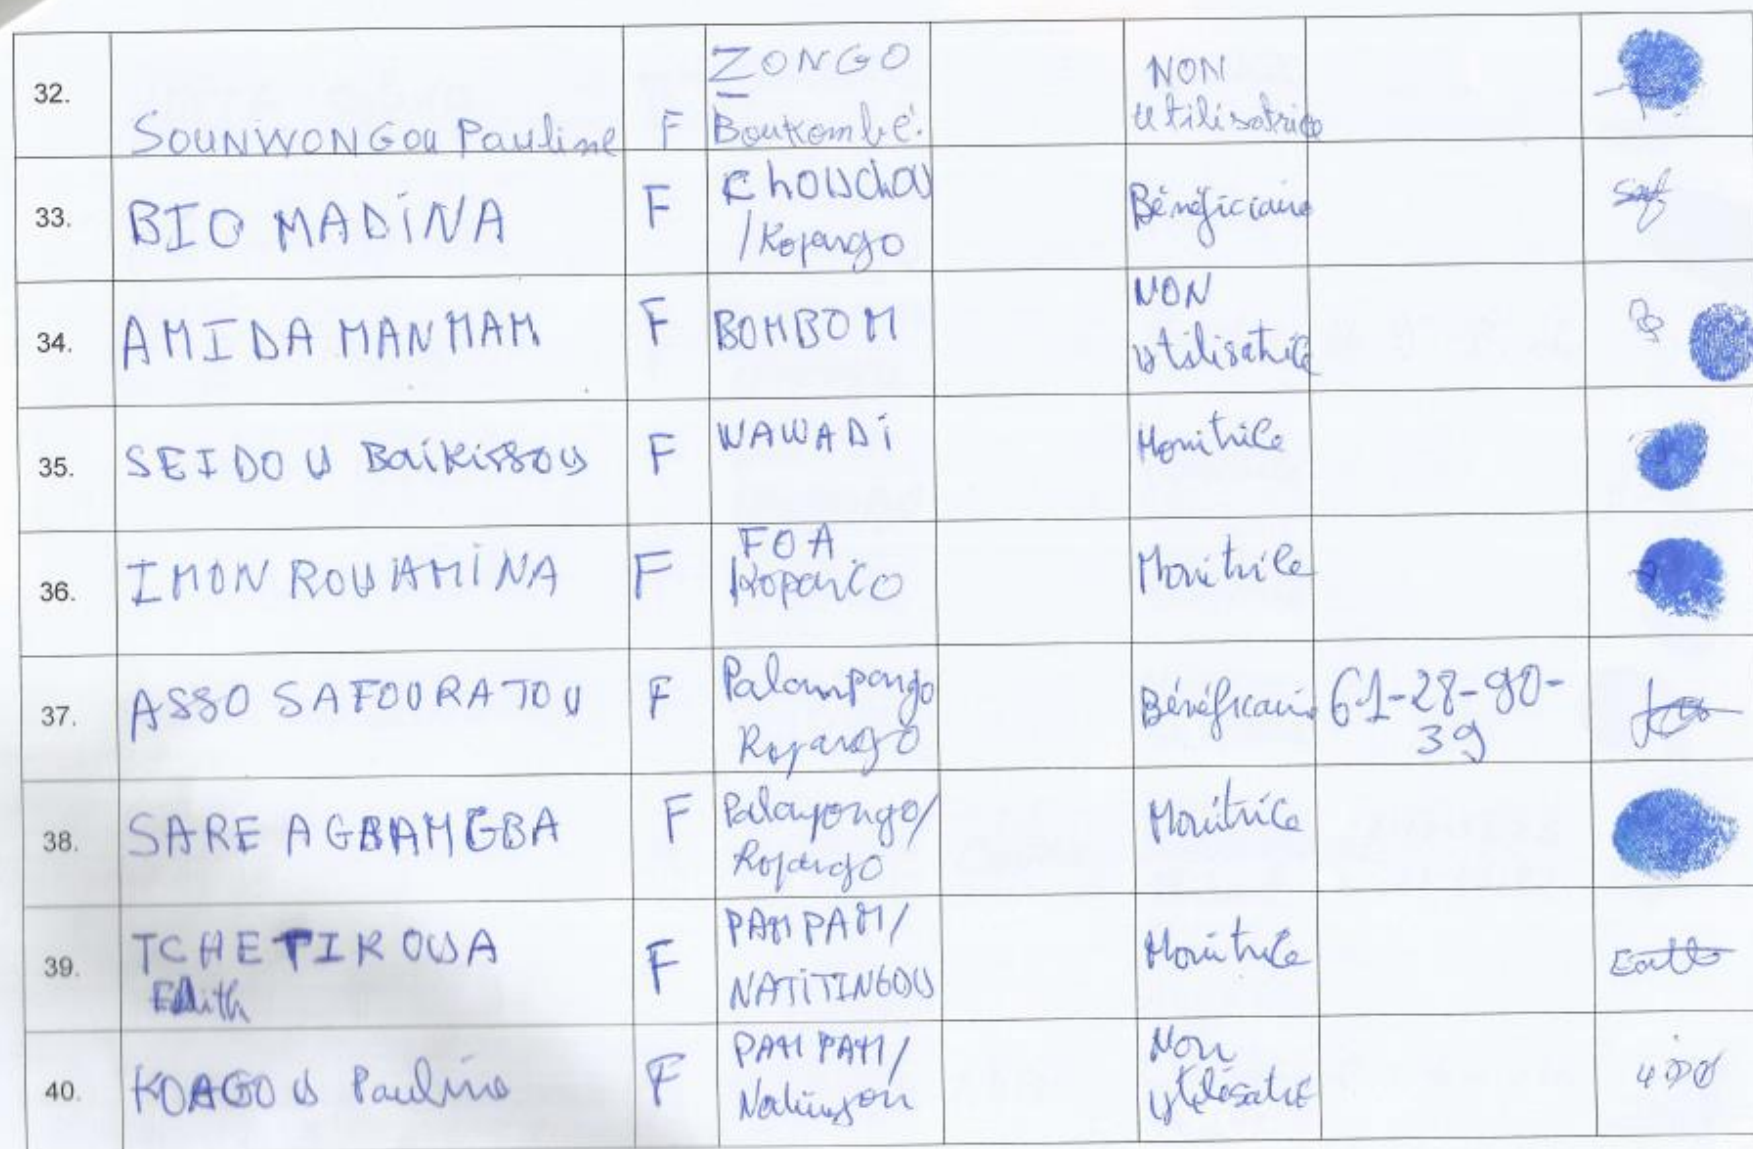 32.
SOUNWONGOU Pauline F ZONGO
Boukombé.
NON
utilisatrice
33.
BIO MADINA F Chouchou
/Kopargo
Bénéficiaire
34.
AMIDA MANMAM F BOMBOM
NON
utilisatrice
35.
SEIDOU Baïkissou F WAWADi
Monitrice
36.
IMON ROUAMINA F FOA
Koparco
Monitrice
37.
ASSO SAFOURATOU F Palampongo
Kopargo
Bénéficiaire 61-28-90-
39
38.
SARE AGBAMGBA F Palapongo/
Kopargo
Monitrice
39.
TCHETIKOUA
Edith
F PAM PAM/
NATITINGOU
Monitrice
40.
KOAGOU Pauline F PAM PAM/
Natingou
Non
utilisatrice